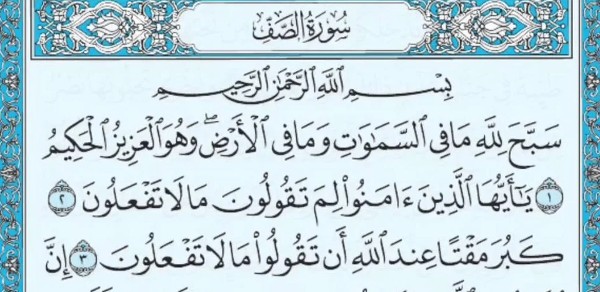 سُورَةُ الصَّفِّ
بِسْمِ اللَّهِ الرَّحْمَٰنِ الرَّحِيمِ
سَبَّحَ لِلَّهِ مَا فِي السَّمَٰوَٰتِ وَمَا فِي الْأَرْضِ ۖ وَهُوَ الْعَزِيزُ الْحَكِيمُ
١ يَٰٓأَيُّهَا الَّذِينَ ءَامَنُوا۟ لِمَ تَقُولُونَ مَا لَا تَفْعَلُونَ ٢
كَبُرَ مَقْتًا عِندَ اللَّهِ أَن تَقُولُوا۟ مَا لَا تَفْعَلُونَ ٣ إِنَّ